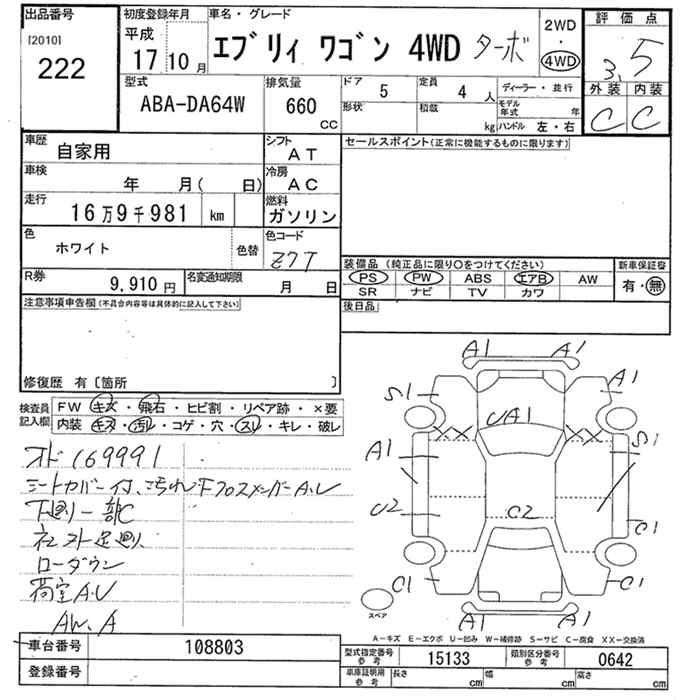 出品番号
[2010]
222
初度登録年月
平成
17 10月
車名・グレード
エブリィ ワゴン 4WD ターボ
2WD
・
4WD
評価点
3.5
外装 内装
C C
型式
ABA-DA64W
排気量
660
CC
ドア 5
定員 4 人
形状
積載 kg
ディーラー・並行
モデル年式 年
ハンドル 左・右
車歴
自家用
シフト
AT
車検
年 月( 日)
冷房
AC
走行
16万9千981 km
燃料
ガソリン
色
ホワイト
色替
色コード
Z7T
R券
9,910円
名変通知期限
月 日
セールスポイント(正常に機能するものに限ります)
装備品(純正品に限り○をつけてください)
PS PW ABS エアB AW
SR ナビ TV カワ
新車保証書
有・無
後日品
注意事項申告欄(不具合内容等は具体的に記入して下さい)
修復歴 有〔箇所 〕
検査員記入欄
FW キズ・飛石・ヒビ割・リペア跡・×要
内装 キズ・汚れ・コゲ・穴・スレ・キレ・破レ
オド169991
シートカバー付、汚れ 下フロスメンバーA・U
下廻り一部C
ローダウン
荷室A・U
AW、A
A1 A1
S1 A1
UA1
A1 S1
U2 C2 C1
C1 C1
A1 A1
スペア
A-キズ E-エクボ U-凹み W-補修跡 S-サビ C-腐食 XX-交換済
車台番号
108803
登録番号
型式指定番号
参考
15133
類別区分番号
参考
0642
車庫証明用
参考
長さ cm
幅 cm
高さ cm